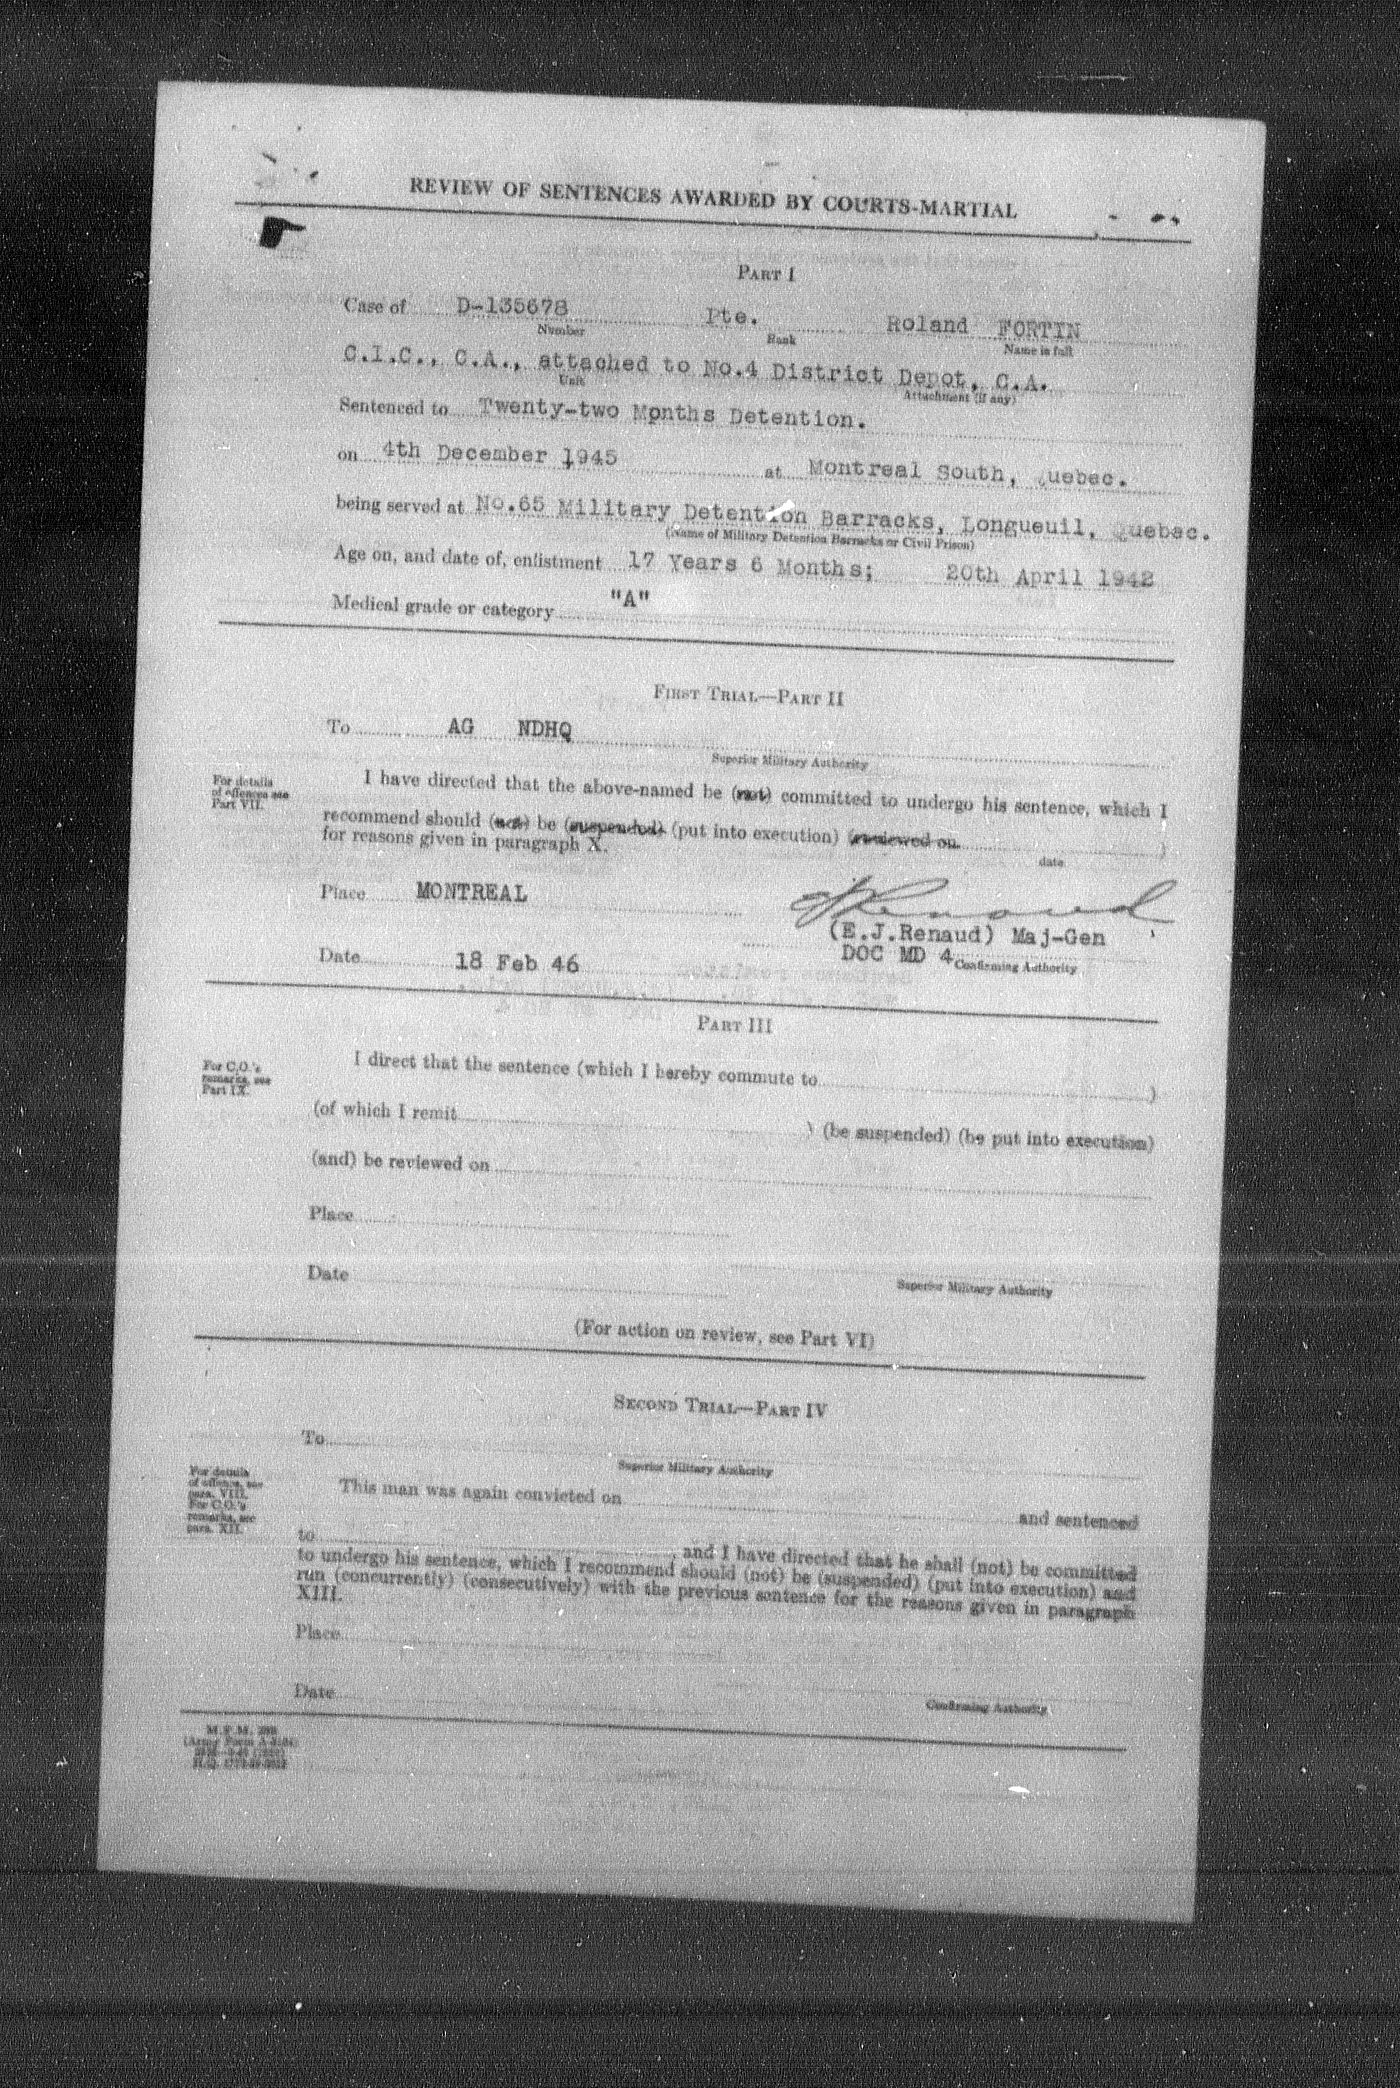 REVIEW OF SENTENCES AWARDED BY COURTS-MARTIAL
PART I
Case of D-135678 Pte. Roland FORTIN
Number Rank Name in full
C.I.C., C.A., attached to No.4 District Depot, C.A.
Unit Attachment (if any)
Sentenced to Twenty-two Months Detention.
on 4th December 1945 at Montreal South, Quebec.
being served at No.65 Military Detention Barracks, Longueuil, Quebec.
(Name of Military Detention Barracks or Civil Prison)
Age on, and date of, enlistment 17 Years 6 Months; 20th April 1942
Medical grade or category "A"
FIRST TRIAL—PART II
To AG NDHQ
Superior Military Authority
For details
of offences see
Part VII.
I have directed that the above-named be (not) committed to undergo his sentence, which I
recommend should (not) be (suspended) (put into execution) (reviewed on )
date
for reasons given in paragraph X.
Place MONTREAL
(E.J.Renaud) Maj-Gen
DOC MD 4
Confirming Authority
Date 18 Feb 46
PART III
For C.O.'s
remarks, see
Part IX.
I direct that the sentence (which I hereby commute to )
(of which I remit ) (be suspended) (be put into execution)
(and) be reviewed on
Place
Date
Superior Military Authority
(For action on review, see Part VI)
SECOND TRIAL—PART IV
To
Superior Military Authority
For details
of offence, see
para. VIII.
For C.O.'s
remarks, see
para. XII.
This man was again convicted on and sentenced
to , and I have directed that he shall (not) be committed
to undergo his sentence, which I recommend should (not) be (suspended) (put into execution) and
run (concurrently) (consecutively) with the previous sentence for the reasons given in paragraph
XIII.
Place
Date
Confirming Authority
M.F.M.
(Army Form